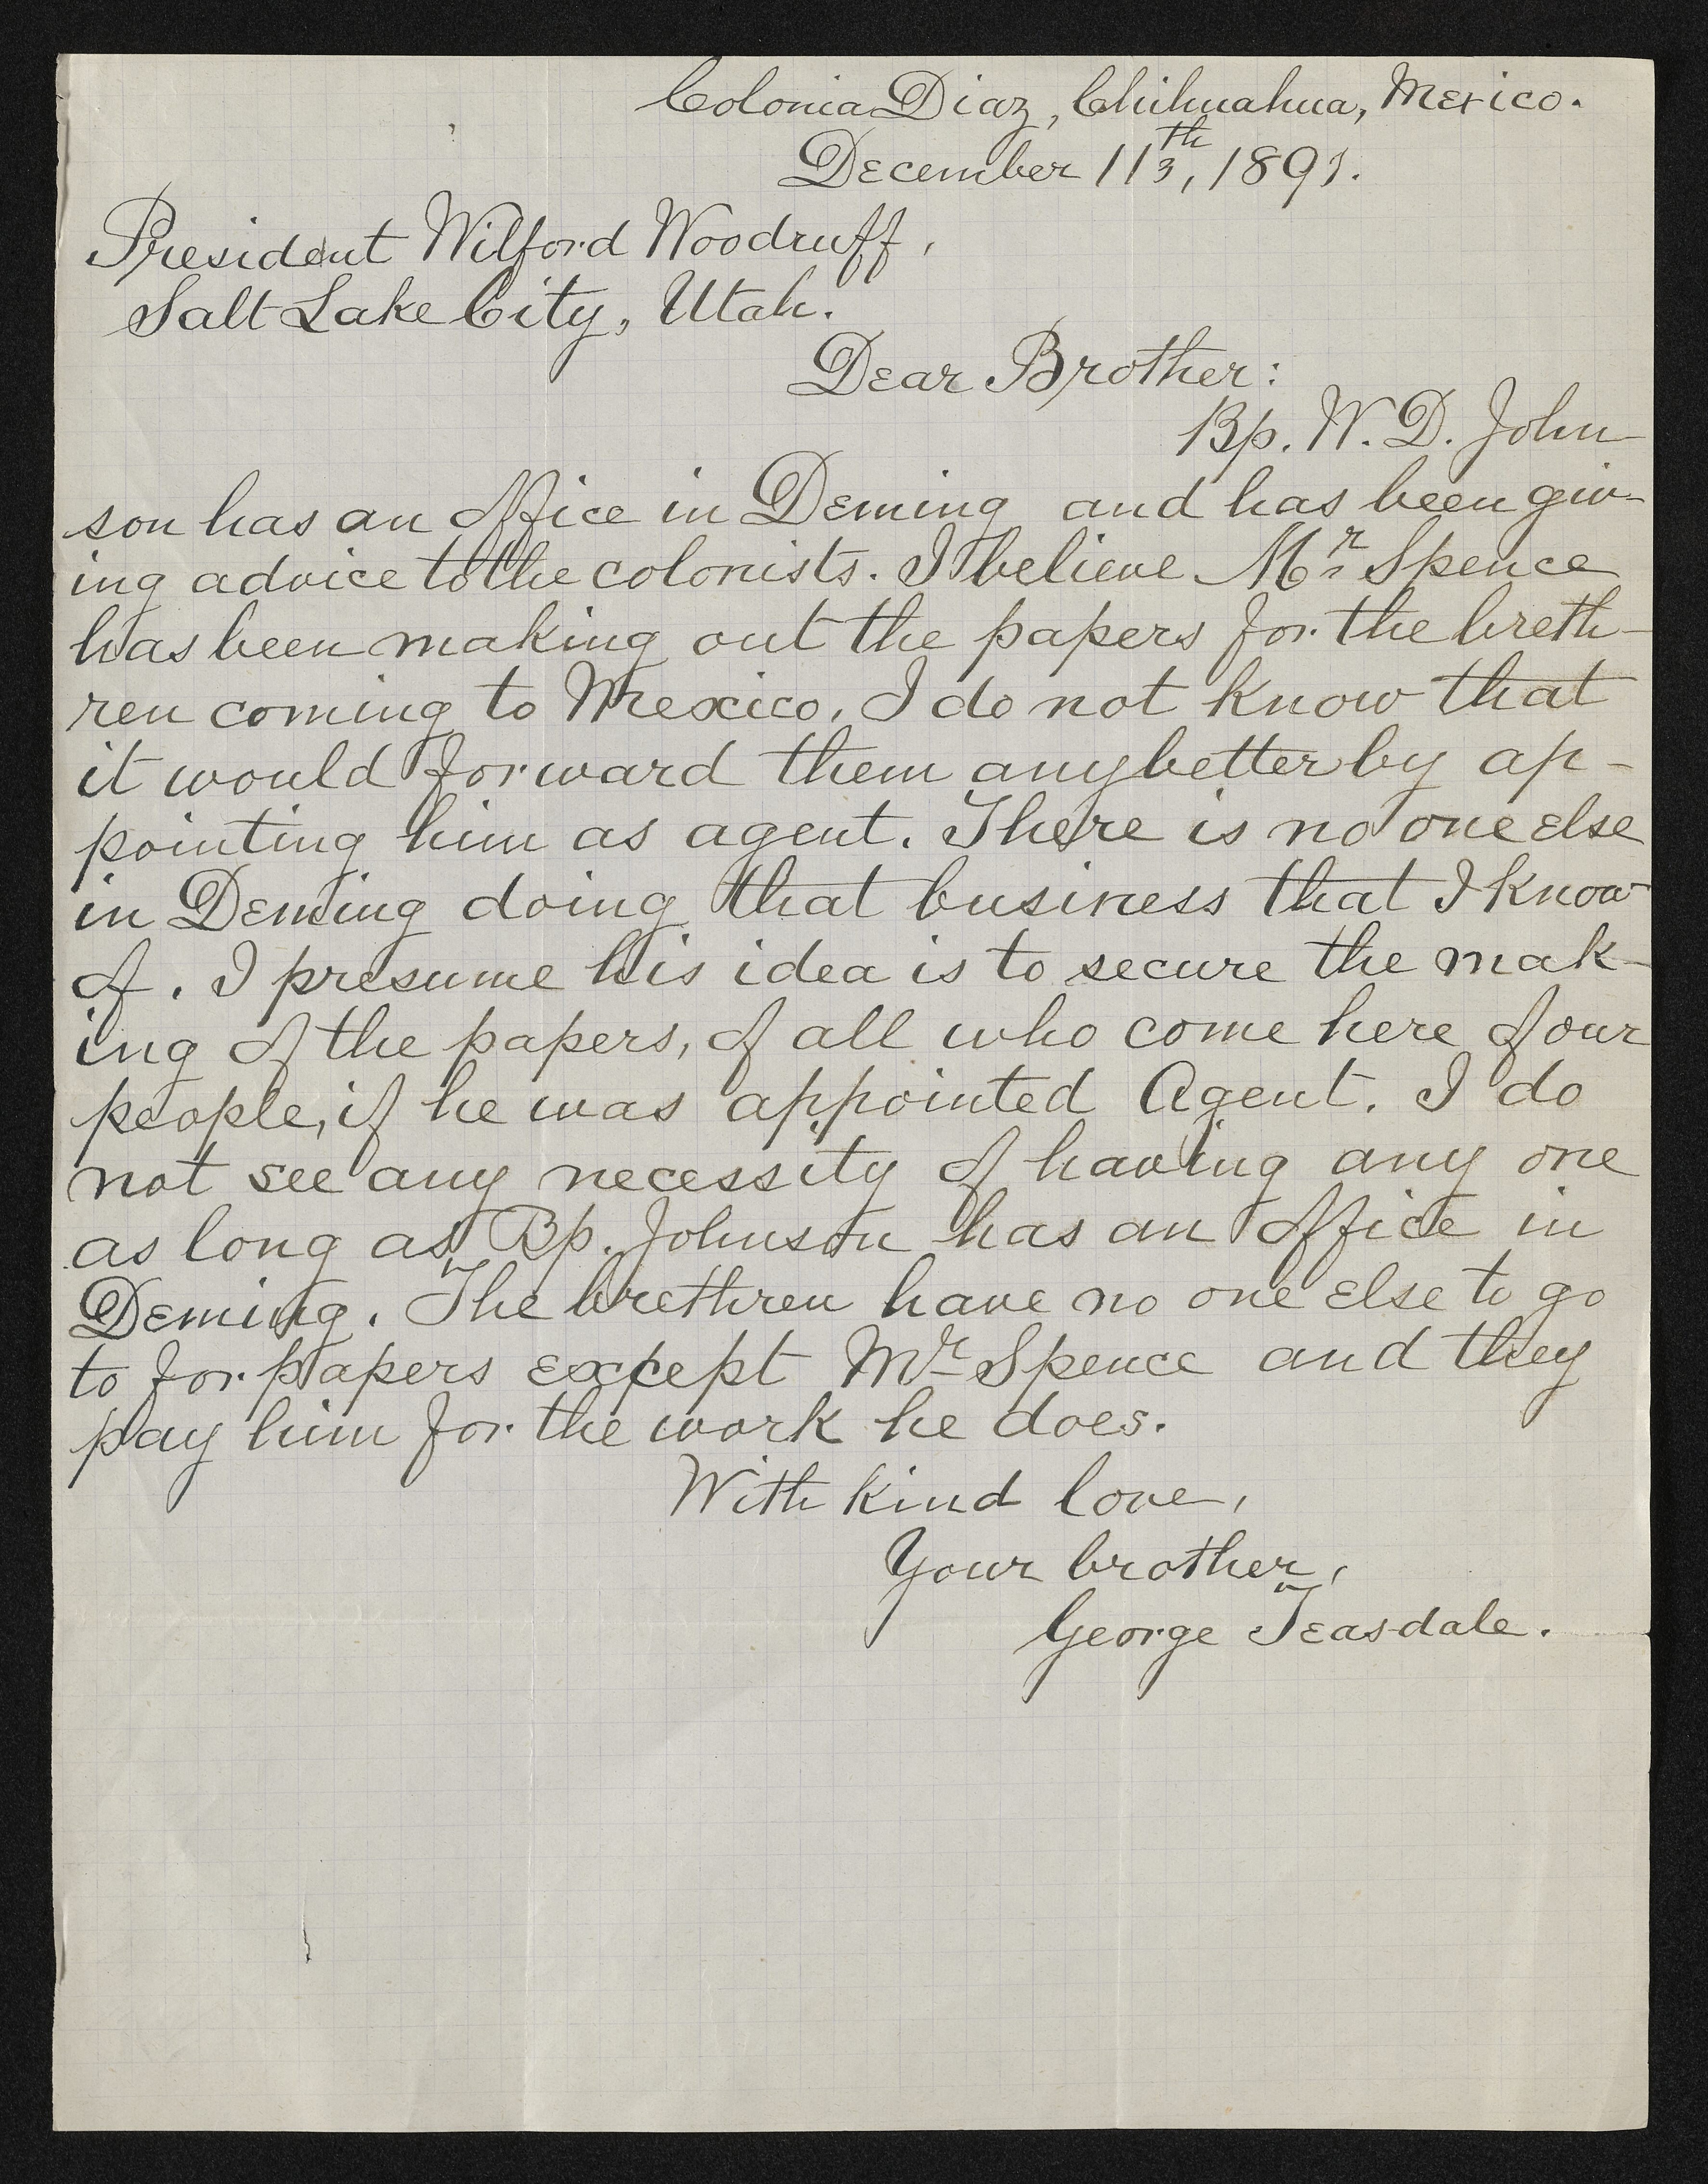 Colonia Diaz, Chihuahua, Mexico.
December 11th, 1891.
President Wilford Woodruff,
Salt Lake City, Utah.
Dear Brother:
Bp. W. D. John-
son has an office in Deming and has been giv-
ing advice to the colonists. I believe Mr Spence
has been making out the papers for the breth-
ren coming to Mexico. I do not know that
it would forward them any better by ap-
pointing him as agent. There is no one else
in Deming doing that business that I know
of. I presume his idea is to secure the mak-
ing of the papers, of all who come here of our
people, if he was appointed Agent. I do
not see any necessity of having any one
as long as Bp. Johnson has an office in
Deming. The brethren have no one else to go
to for papers except Mr Spence and they
pay him for the work he does.
With kind love,
Your brother,
George Teasdale.